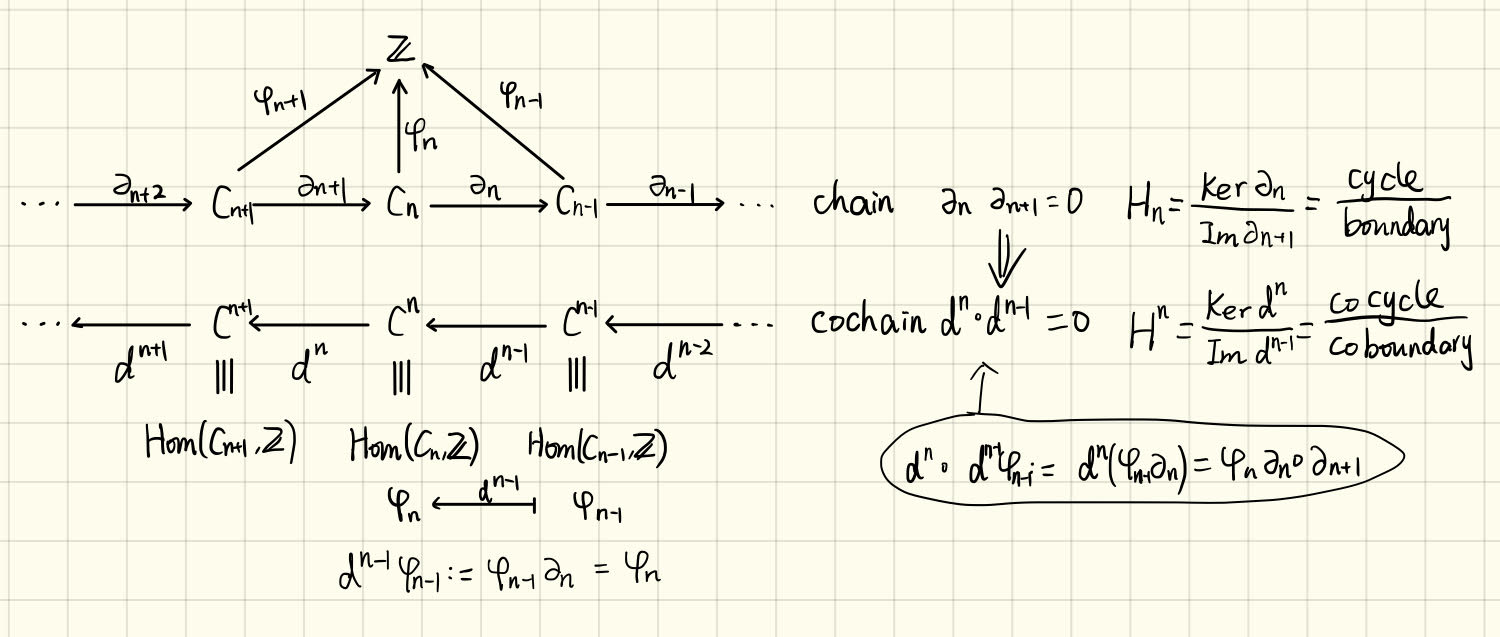 ℤ
φₙ₊₁ φₙ φₙ₋₁
⋯ ∂ₙ₊₂ Cₙ₊₁ ∂ₙ₊₁ Cₙ ∂ₙ Cₙ₋₁ ∂ₙ₋₁ ⋯ chain ∂ₙ ∂ₙ₊₁ = 0 Hₙ = Ker ∂ₙ / Im ∂ₙ₊₁ = cycle / boundary
⇓
⋯ ← Cⁿ⁺¹ ← Cⁿ ← Cⁿ⁻¹ ← ⋯ cochain dⁿ∘dⁿ⁻¹ = 0 Hⁿ = Ker dⁿ / Im dⁿ⁻¹ = cocycle / coboundary
dⁿ⁺¹ dⁿ dⁿ⁻¹ dⁿ⁻²
||| ||| |||
Hom(Cₙ₊₁, ℤ) Hom(Cₙ, ℤ) Hom(Cₙ₋₁, ℤ)
dⁿ∘ dⁿ⁻¹φₙ₋₁ = dⁿ(φₙ₋₁∂ₙ) = φₙ ∂ₙ∘∂ₙ₊₁
φₙ ← dⁿ⁻¹ φₙ₋₁
dⁿ⁻¹φₙ₋₁ := φₙ₋₁ ∂ₙ = φₙ